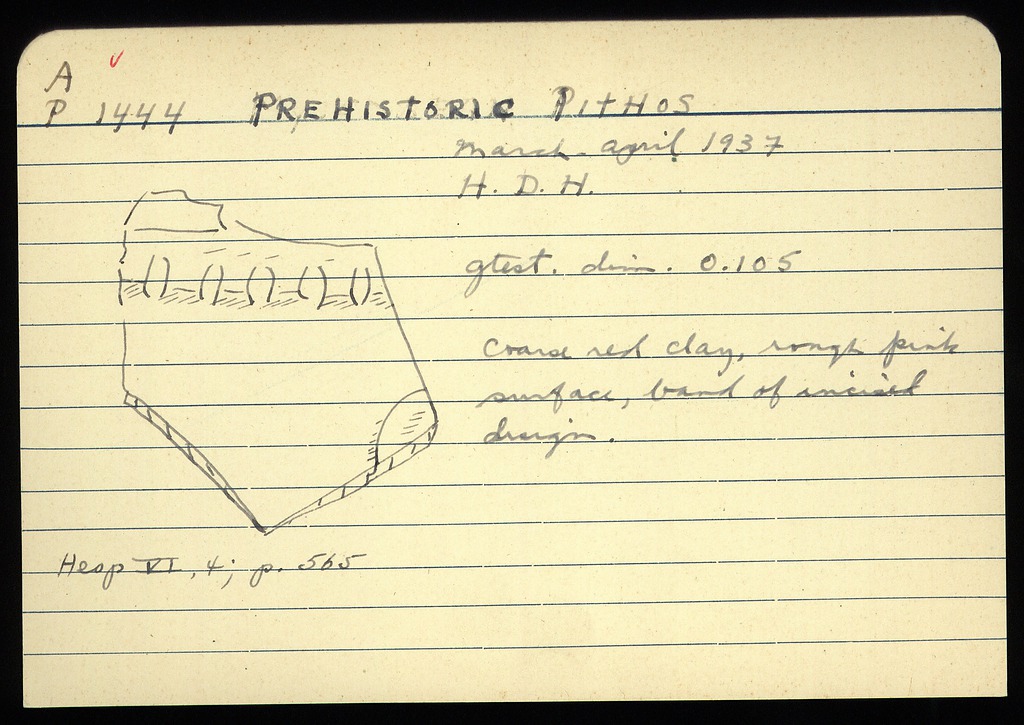 A
P 1444 PREHISTORIC PITHOS
March - April 1937
H. D. H.
gtest. dim. 0.105
Coarse red clay, rough pink
surface, band of incised
design.
Hesp VI, 4; p. 565